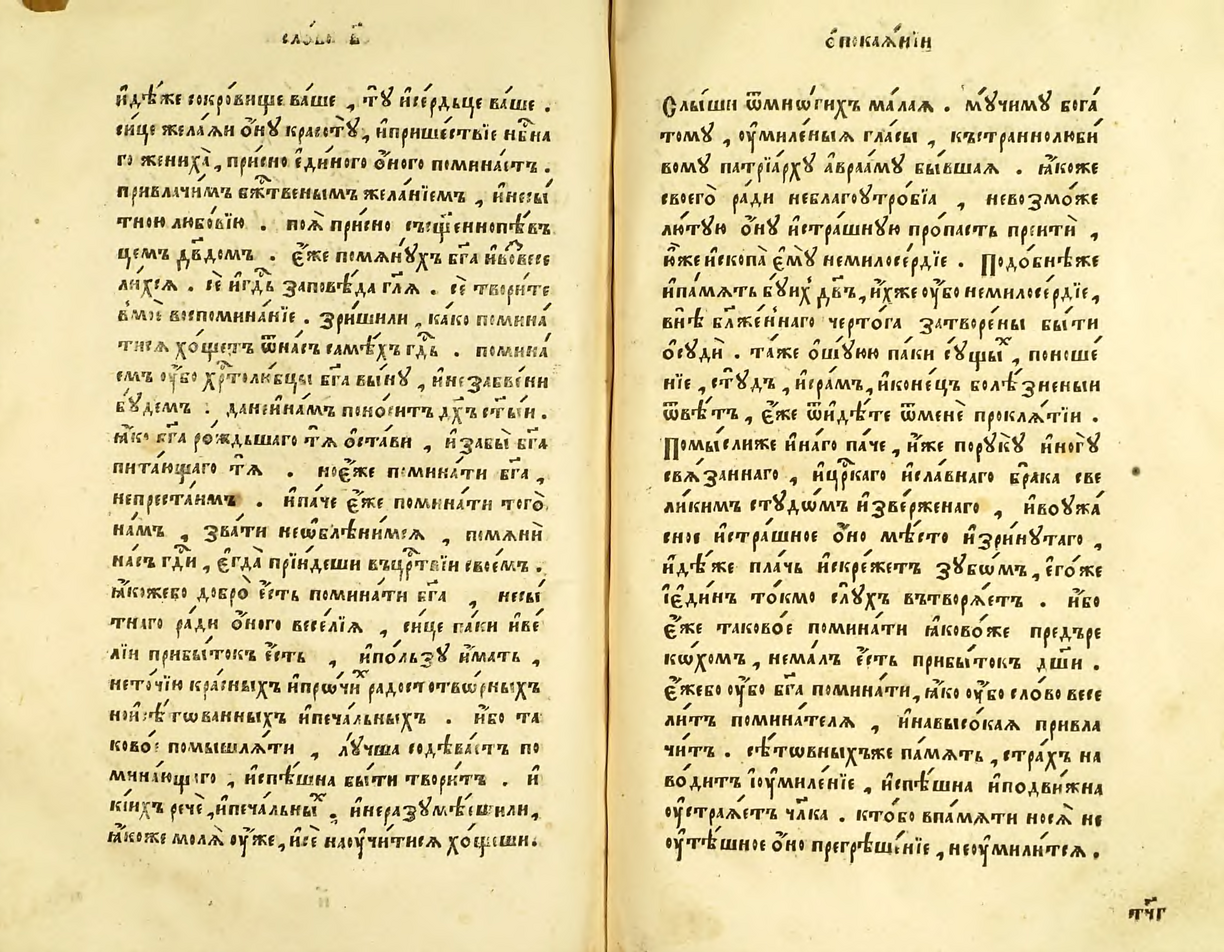 сло́во в҃
и҆дѣ́же сокро́вище ва́ше , тꙋ̀ и҆се́рдьце ва́ше .
си́це жела́ѧи ѻ҆́нꙋ красотꙋ̀ , и҆прише́ствїе нб҃на
го жениха̀ , при́сно є҆ди́ного ѻ҆́ного помина́етъ .
привлачи́мъ бж҃твенымъ жела́нїемъ , и҆несы́
тною любо́вїю . поѧ̀ при́сно съсщ҃еннопѣ́въ
цемъ дв҃домъ . є҆́же помѧнꙋ́хъ бг҃а и҆возвесе
ли́хсѧ . сѐ и҆гдⷭ҇ь заповѣ́да гл҃ѧ . сѐ твори́те
в̾моѐ воспомина́нїе . зри́шили , ка́ко помина́
тисѧ хо́щетъ ѿна́съ самѣ́хъ гдⷭ҇ь . помина́
емъ ᲂу҆̀бо хрⷭ҇толю́бцы бг҃а вы́нꙋ , и҆незабве́ни
бꙋ́демъ . дане̾и҆на́мъ поно́ситъ дх҃ъ ст҃ы́и .
ꙗ҆́ко бг҃а ро́ждьшаго тѧ̀ ѻ҆ста́ви , и҆забы̀ бг҃а
пита́ющаго тѧ̀ . ноє҆́же помина́ти бг҃а ,
непреста́нимъ . и҆па́че є҆́же помина́ти того̀
на́мъ , зва́ти неѡ҆блѣни́мсѧ , помѧнѝ
на́съ гдⷭ҇и , є҆гда̀ прїи́деши въцрⷭ҇твїи свое́мъ .
ꙗ҆́кожебо добро̀ є҆́сть помина́ти бг҃а , несы́
тнаго ра́ди ѻ҆́ного весе́лїѧ , си́це па́ки и҆ве́
лїи прибы́токъ є҆́сть , и҆по́льзꙋ и҆́мать ,
нето́чїю кра́сныхъ и҆про́чиⷯ радостотво́рныхъ
нои҆сѣ́тованныхъ и҆печа́льныхъ . и҆́бо та
ково́е помышлѧ́ти , лꙋ́чша содѣ́ваетъ по
мина́ющаго , и҆спѣ́шна бы́ти твори́тъ . и҆
кі́ихъ речѐ , и҆печа́льныⷯ . и҆неразꙋмѣ́ешили ,
ꙗ҆́коже молѧ̀ ᲂу҆́же , и҆сѐ наᲂучи́тисѧ хо́щеши .
ѡ҆покаѧ́нїи
Слы́ши ѿмно́гихъ ма́лаѧ . мꙋ́чимꙋ бога́
томꙋ , ᲂу҆миле́ныѧ гла́сы , къстраннолюби́
вомꙋ патрїа́рхꙋ а҆враа́мꙋ бы́вшаѧ . ꙗ҆́коже
своего̀ ра́ди неблагоᲂутро́бїа , невозмо́же
лю́тꙋю ѻ҆́нꙋ и҆стра́шнꙋю про́пасть преитѝ ,
ю҆́же и҆скопа̀ є҆мꙋ̀ немилосе́рдїе . Подо́бнѣже
и҆па́мѧть бꙋ́ихъ дв҃ъ , и҆́хже ᲂу҆̀бо немилосе́рдїе ,
внѣ̀ бл҃же́ннаго черто́га затворе́ны бы́ти
ѻ҆сꙋдѝ . та́же ѻ҆шꙋ́юю па́ки сꙋ́щыⷯ , поноше́
нїе , стꙋ́дъ , и҆сра́мъ , и҆коне́цъ болѣ́зненыи
ѿвѣ́тъ , є҆́же ѿи҆дѣ́те ѿменѐ проклѧ́тїи .
Помы́слиже и҆на́го па́че , и҆́же порꙋ́кꙋ и҆ногꙋ̀
свѧ́заннаго , и҆црⷭ҇каго и҆сла́внаго бра́ка све
ли́кимъ стꙋдо́мъ и҆зве́рженаго , и҆воᲂужа́
сное и҆стра́шное ѻ҆́но мѣ́сто и҆зри́нꙋтаго ,
и҆дѣ́же пла́чь и҆скре́жетъ зꙋбо́мъ , є҆го́же
ї҆є҆ди́нъ то́кмо слꙋ́хъ вътворѧ́етъ . и҆́бо
є҆́же таково́е помина́ти ꙗ҆ково́же предъре
ко́хомъ , нема́лъ є҆́сть прибы́токъ дш҃и .
є҆́жебо ᲂу҆̀бо бг҃а помина́ти , ꙗ҆́ко ᲂу҆̀бо сло́во весе
ли́тъ помина́телѧ , и҆навысо́каѧ привла
чи́тъ . сѣ́товныхъже па́мѧть , стра́хъ на
во́дитъ і҆ᲂумиле́нїе , и҆спѣ́шна и҆подви́жна
ᲂу҆стралѧ́етъ чл҃ка . кто́бо впа́мѧти носѧ̀ не
ᲂу҆тѣ́шное ѻ҆́но прегрѣше́нїе , неᲂу҆мили́тсѧ .
тч҃г